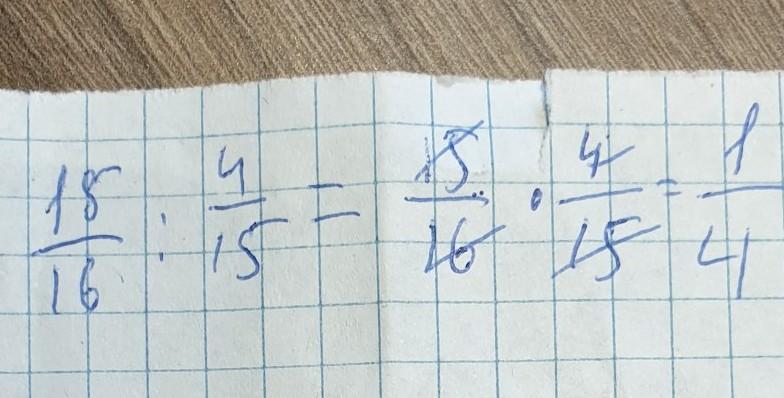 15/16 : 4/15 = 15/16 · 4/15 = 1/4